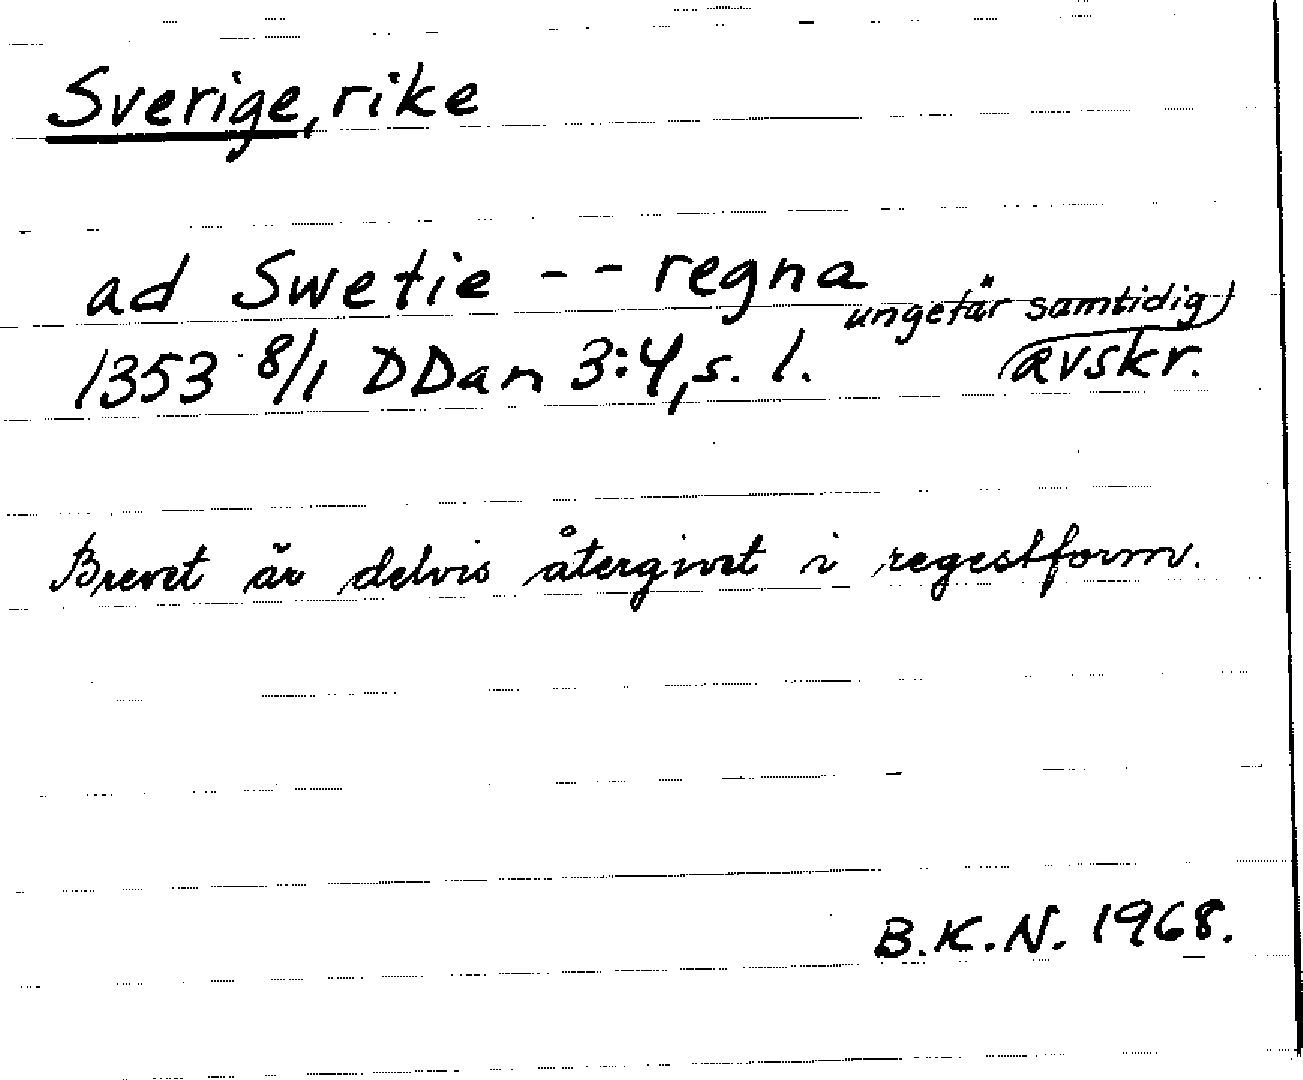 Sverige, rike
ad Swetie -- regna
ungefär samtidig
1353 8/1 DDan 3:4, s. 1. avskr.
Brevet är delvis återgivet i regestform.
B.K.N. 1968.